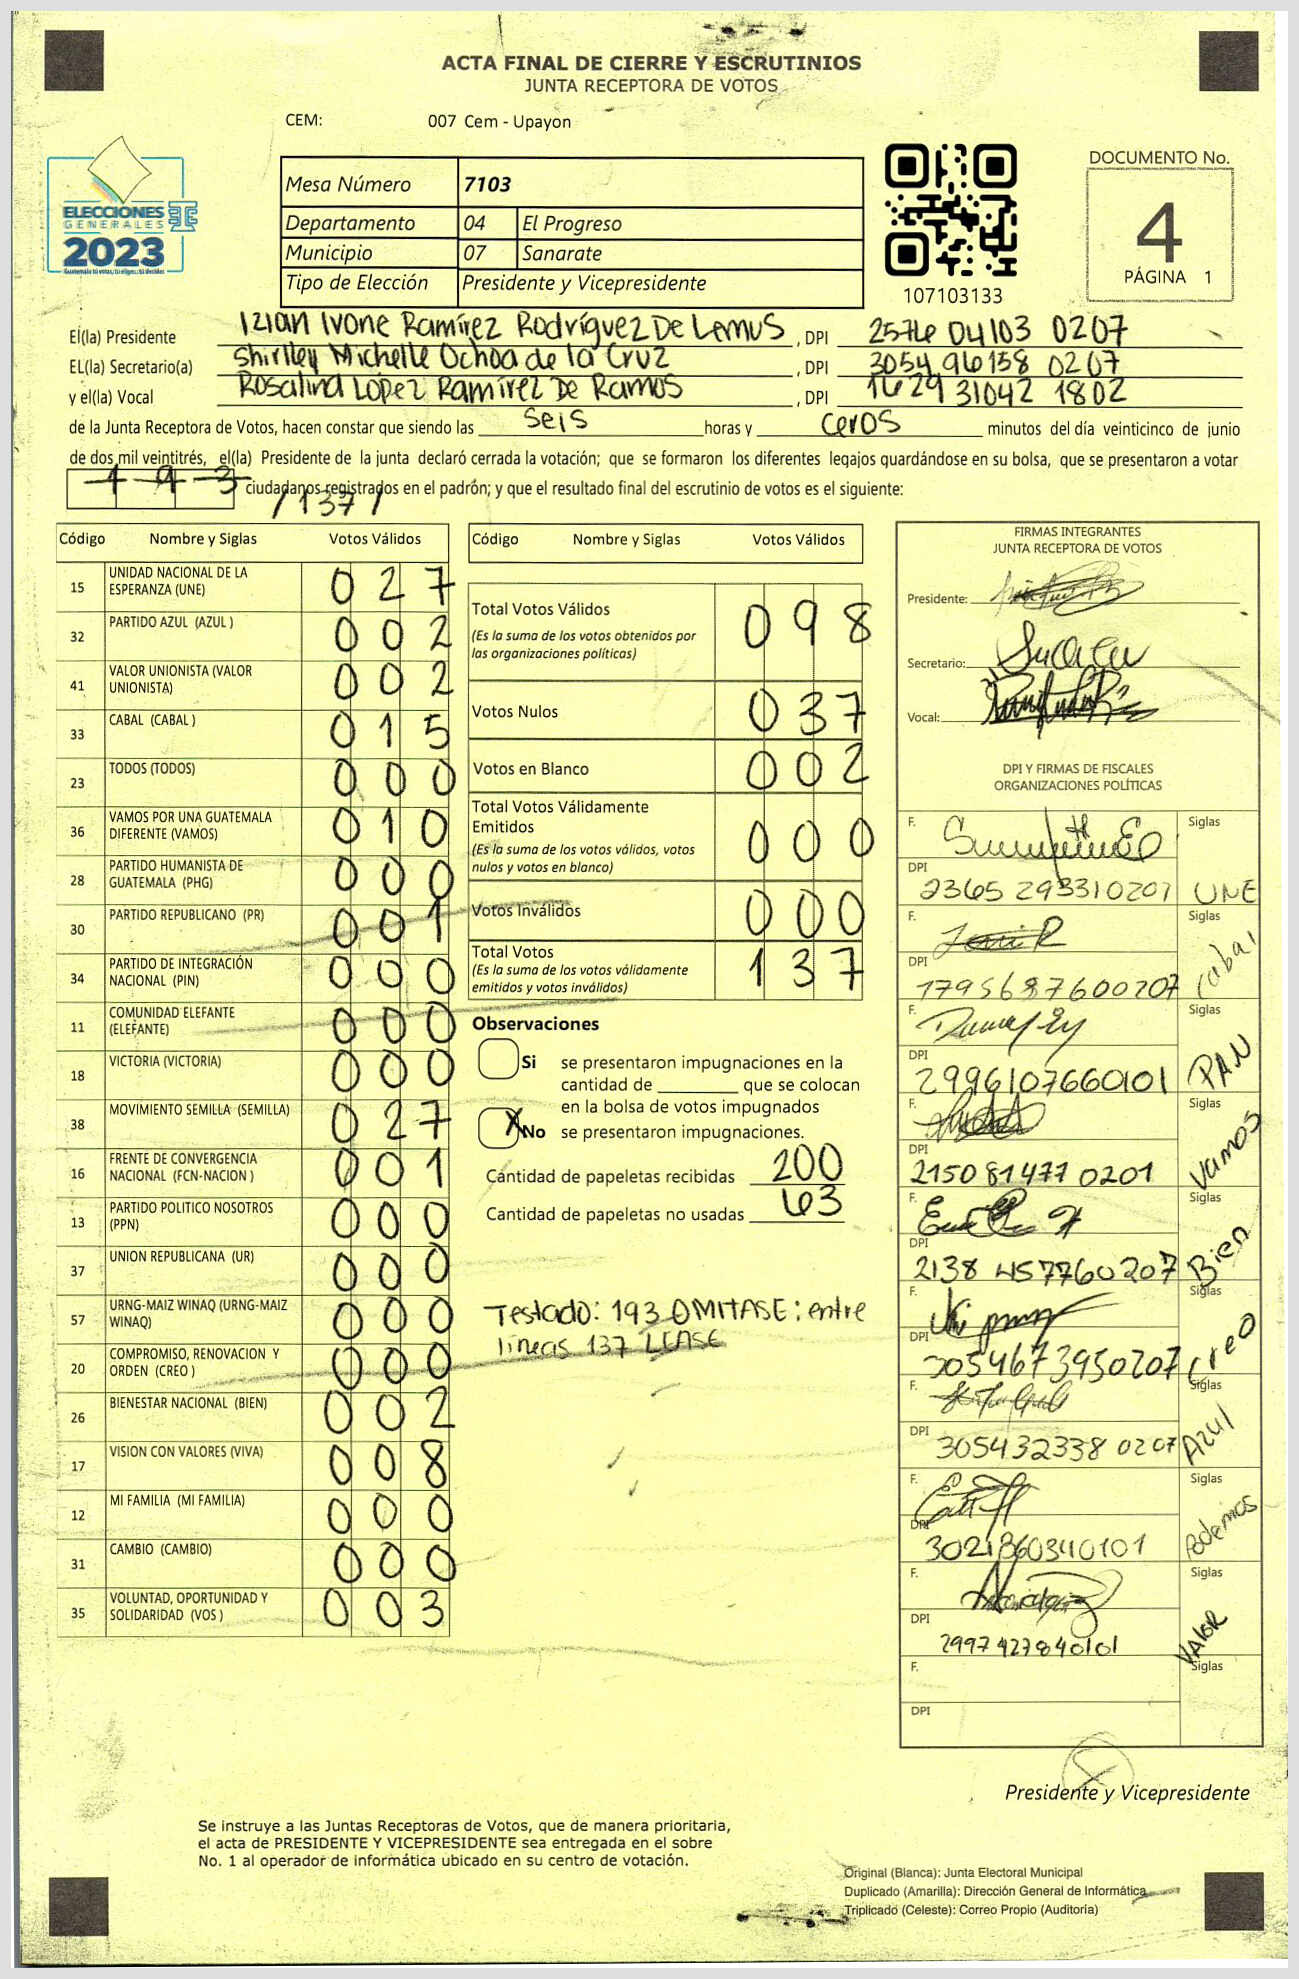 ACTA FINAL DE CIERRE Y ESCRUTINIOS
JUNTA RECEPTORA DE VOTOS
CEM: 007 Cem - Upayon
ELECCIONES
GENERALES
2023
Guatemala tú votas, tú eliges, tú decides
Mesa Número 7103
Departamento 04 El Progreso
Municipio 07 Sanarate
Tipo de Elección Presidente y Vicepresidente
107103133
DOCUMENTO No.
4
PÁGINA 1
El(la) Presidente Izian Ivone Ramírez Rodríguez De Lemus, DPI 2576 04103 0207
EL(la) Secretario(a) Shirlley Michelle Ochoa de la Cruz, DPI 3054 96158 0207
y el(la) Vocal Rosalina López Ramírez De Ramos, DPI 1629 31042 1802
de la Junta Receptora de Votos, hacen constar que siendo las seis horas y ceros minutos del día veinticinco de junio
de dos mil veintitrés, el(la) Presidente de la junta declaró cerrada la votación; que se formaron los diferentes legajos quardándose en su bolsa, que se presentaron a votar
193 ciudadanos registrados en el padrón; y que el resultado final del escrutinio de votos es el siguiente:
/137/
Código Nombre y Siglas Votos Válidos
15 UNIDAD NACIONAL DE LA ESPERANZA (UNE) 027
32 PARTIDO AZUL (AZUL ) 002
41 VALOR UNIONISTA (VALOR UNIONISTA) 002
33 CABAL (CABAL ) 015
23 TODOS (TODOS) 000
36 VAMOS POR UNA GUATEMALA DIFERENTE (VAMOS) 010
28 PARTIDO HUMANISTA DE GUATEMALA (PHG) 000
30 PARTIDO REPUBLICANO (PR) 001
34 PARTIDO DE INTEGRACIÓN NACIONAL (PIN) 000
11 COMUNIDAD ELEFANTE (ELEFANTE) 000
18 VICTORIA (VICTORIA) 000
38 MOVIMIENTO SEMILLA (SEMILLA) 027
16 FRENTE DE CONVERGENCIA NACIONAL (FCN-NACION ) 001
13 PARTIDO POLITICO NOSOTROS (PPN) 000
37 UNION REPUBLICANA (UR) 000
57 URNG-MAIZ WINAQ (URNG-MAIZ WINAQ) 000
20 COMPROMISO, RENOVACION Y ORDEN (CREO ) 000
26 BIENESTAR NACIONAL (BIEN) 002
17 VISION CON VALORES (VIVA) 008
12 MI FAMILIA (MI FAMILIA) 000
31 CAMBIO (CAMBIO) 000
35 VOLUNTAD, OPORTUNIDAD Y SOLIDARIDAD (VOS ) 003
Código Nombre y Siglas Votos Válidos
Total Votos Válidos 098
(Es la suma de los votos obtenidos por
las organizaciones políticas)
Votos Nulos 037
Votos en Blanco 002
Total Votos Válidamente
Emitidos 000
(Es la suma de los votos válidos, votos
nulos y votos en blanco)
Votos Inválidos 000
Total Votos 137
(Es la suma de los votos válidamente
emitidos y votos inválidos)
Observaciones
Si se presentaron impugnaciones en la
cantidad de ________ que se colocan
en la bolsa de votos impugnados
X No se presentaron impugnaciones.
Cantidad de papeletas recibidas 200
Cantidad de papeletas no usadas 63
Testado: 193 OMITASE: entre
líneas 137 LEASE
FIRMAS INTEGRANTES
JUNTA RECEPTORA DE VOTOS
Presidente:
Secretario:
Vocal:
DPI Y FIRMAS DE FISCALES
ORGANIZACIONES POLÍTICAS
F. Siglas
DPI 2365 293310201 UNE
F. Siglas
DPI 1795687600207 Cabal
F. Siglas
DPI 2996107660101 PAN
F. Siglas
DPI 2150 81477 0201 Vamos
F. Siglas
DPI 2138 457760207 Bien
F. Siglas
DPI 3054673950207 Creo
F. Siglas
DPI 305432338 0207 Azul
F. Siglas
DPI 3021860340101 Podemos
F. Siglas
DPI 2997427840101 VALOR
F. Siglas
DPI
Presidente y Vicepresidente
Se instruye a las Juntas Receptoras de Votos, que de manera prioritaria,
el acta de PRESIDENTE Y VICEPRESIDENTE sea entregada en el sobre
No. 1 al operador de informática ubicado en su centro de votación.
Original (Blanca): Junta Electoral Municipal
Duplicado (Amarilla): Dirección General de Informática
Triplicado (Celeste): Correo Propio (Auditoría)